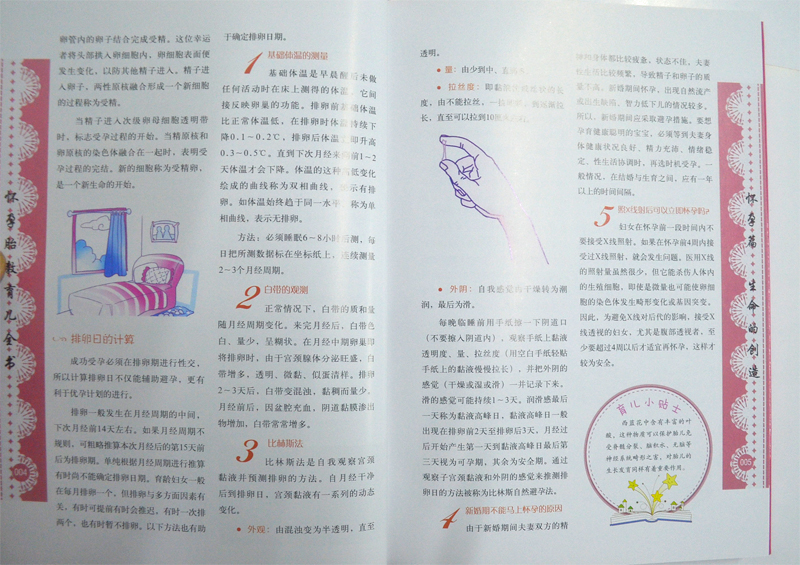 怀孕胎教育儿全书
004
卵管内的卵子结合完成受精。这位幸运
者将头部拱入卵细胞内，卵细胞表面便
发生变化，以防其他精子进入。精子进
入卵子，两性原核融合形成一个新细胞
的过程称为受精。
当精子进入次级卵母细胞透明带
时，标志受孕过程的开始。当精原核和
卵原核的染色体融合在一起时，表明受
孕过程的完结。新的细胞称为受精卵，
是一个新生命的开始。
排卵日的计算
成功受孕必须在排卵期进行性交，
所以计算排卵日不仅能辅助避孕，更有
利于优孕计划的进行。
排卵一般发生在月经周期的中间，
下次月经前14天左右。如果月经周期不
规则，可粗略推算本次月经后的第15天前
后为排卵期。单纯根据月经周期进行推算
有时尚不能确定排卵日期。育龄妇女一般
在每月排卵一个，但排卵与多方面因素有
关，有时可提前有时会推迟。有时一次排
两个，也有时暂不排卵。以下方法也有助
于确定排卵日期。
1 基础体温的测量
基础体温是早晨醒后未做
任何活动时在床上测得的体温，它间
接反映卵巢的功能。排卵前基础体温
比正常体温低，在排卵时体温持续下
降0.1～0.2℃，排卵后体温立即升高
0.3～0.5℃。直到下次月经来的前1～2
天体温才会下降。体温的这种高低变化
绘成的曲线称为双相曲线，表示有排
卵。如体温始终趋于同一水平，称为单
相曲线，表示无排卵。
方法：必须睡眠6～8小时后测，每
日把所测数据标在坐标纸上，连续测量
2～3个月经周期。
2 白带的观测
正常情况下，白带的质和量
随月经周期变化。来完月经后，白带色
白、量少，呈糊状。在月经中期卵巢即
将排卵时，由于宫颈腺体分泌旺盛，白
带增多，透明、微黏、似蛋清样。排卵
2～3天后，白带变混浊，黏稠而量少。
月经前后，因盆腔充血，阴道黏膜渗出
物增加，白带常常增多。
3 比林斯法
比林斯法是自我观察宫颈
黏液并预测排卵的方法。自月经干净
后到排卵日，宫颈黏液有一系列的动态
变化。
● 外观：由混浊变为半透明，直至
透明。
● 量：由少到中，
● 拉丝度：即黏液
度，由不能拉丝，一拉
长，直至可以拉到10厘米
● 外阴：自我感觉由干燥转为潮
润，最后为滑。
每晚临睡前用手纸擦一下阴道口
（不要擦入阴道内），观察手纸上黏液
透明度、量、拉丝度（用空白手纸轻贴
手纸上的黏液慢慢拉长），并把外阴的
感觉（干燥或湿或滑）一并记录下来。
滑的感觉可能持续1～3天，润滑感最后
一天称为黏液高峰日。黏液高峰日一般
出现在排卵前2天至排卵后3天。月经过
后开始产生第一天到黏液高峰日最后第
三天视为可孕期，其余为安全期。通过
观察子宫颈黏液和外阴的感觉来推测排
卵日的方法被称为比林斯自然避孕法。
4 新婚期不能马上怀孕的原因
由于新婚期间夫妻双方的精
神和身体都比较疲惫，状态不佳，夫妻
性生活比较频繁，导致精子和卵子的质
量不高。新婚期间怀孕，出现自然流产
或出生缺陷、智力低下儿的情况较多。
所以，新婚期间应采取避孕措施。要想
孕育健康聪明的宝宝，必须等到夫妻身
体健康状况良好、精力充沛、情绪稳
定，性生活协调时，再选时机受孕。一
般情况，在结婚与生育之间，应有一年
以上的时间间隔。
5 照X线射后可以立即怀孕吗？
妇女在怀孕前一段时间内不
要接受X线照射，如果在怀孕前4周内接
受过X线照射，就会发生问题。医用X线
的照射量虽然很少，但它能杀伤人体内
的生殖细胞，即使是微量也可能使卵细
胞的染色体发生畸形变化或基因突变。
因此，为避免X线对后代的影响，接受X
线透视的妇女，尤其是腹部透视者，至
少要超过4周以后才适宜再怀孕，这样才
较为安全。
育儿小贴士
西蓝花中含有丰富的叶
酸，这种物质可以保护胎儿免
受脊髓分裂、脑积水、无脑等
神经系统畸形之害，对胎儿的
生长发育同样有着重要作用。
怀孕篇 生命的创造
005